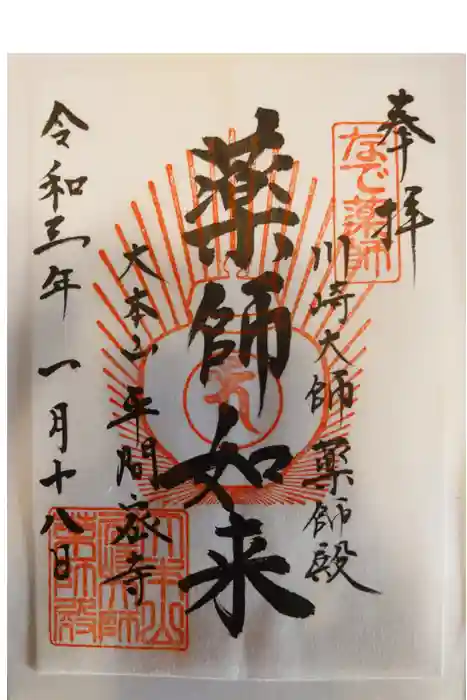 奉拝
なで薬師
川崎大師 薬師殿
薬師如来
大本山 平間寺
令和三年 一月十八日